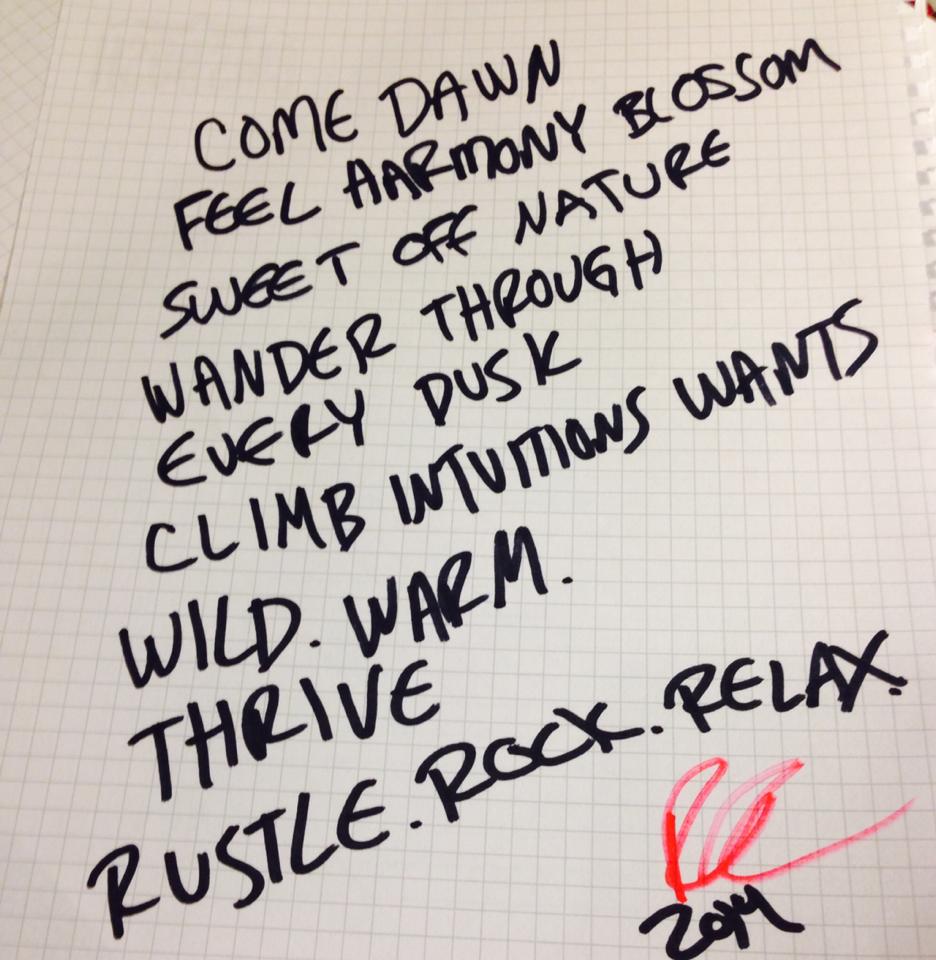 COME DAWN
FEEL HARMONY BLOSSOM
SWEET OFF NATURE
WANDER THROUGH
EVERY DUSK
CLIMB INTUITIONS WANTS
WILD. WARM.
THRIVE
RUSTLE. ROCK. RELAX.
2014